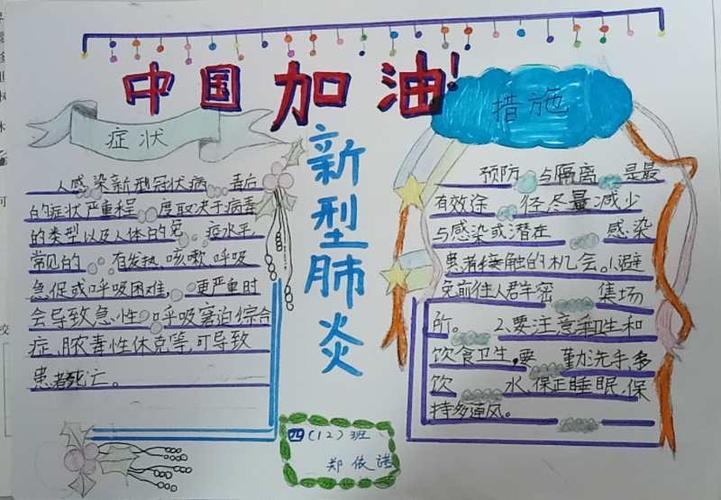 中国加油!
症状
人感染新型冠状病毒后
的症状严重程度取决于病毒
的类型以及人体的免症水平,
常见的有发热、咳嗽、呼吸
急促或呼吸困难,更严重时
会导致急性呼吸窘迫综合
症、脓毒性休克等,可导致
患者死亡。
新型肺炎
措施
预防与隔离是最
有效途径尽量减少
与感染或潜在感染
患者接触的机会。1、避
免前往人群牢密集场
所。2、要注意卫生和
饮食卫生,要勤洗手,多
饮水,保证睡眠,保
持多通风。
四(12)班
郑依诺